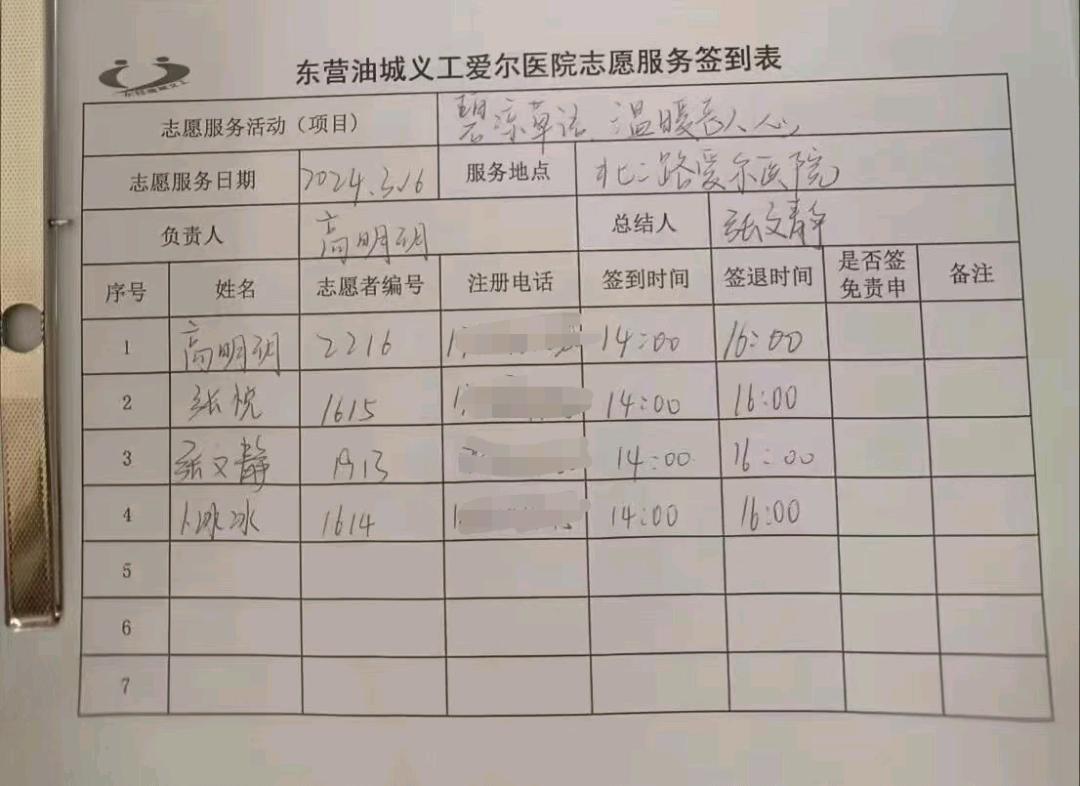 东营油城义工
东营油城义工爱尔医院志愿服务签到表
志愿服务活动（项目） 温暖人心
志愿服务日期 2024.3.16 服务地点 北二路爱尔医院
负责人 高明玥 总结人 张文静
序号 姓名 志愿者编号 注册电话 签到时间 签退时间 是否签免责申 备注
1 高明玥 2216 14:00 16:00
2 张悦 1615 14:00 16:00
3 张文静 14:00 16:00
4 卜冰冰 1614 14:00 16:00
5
6
7